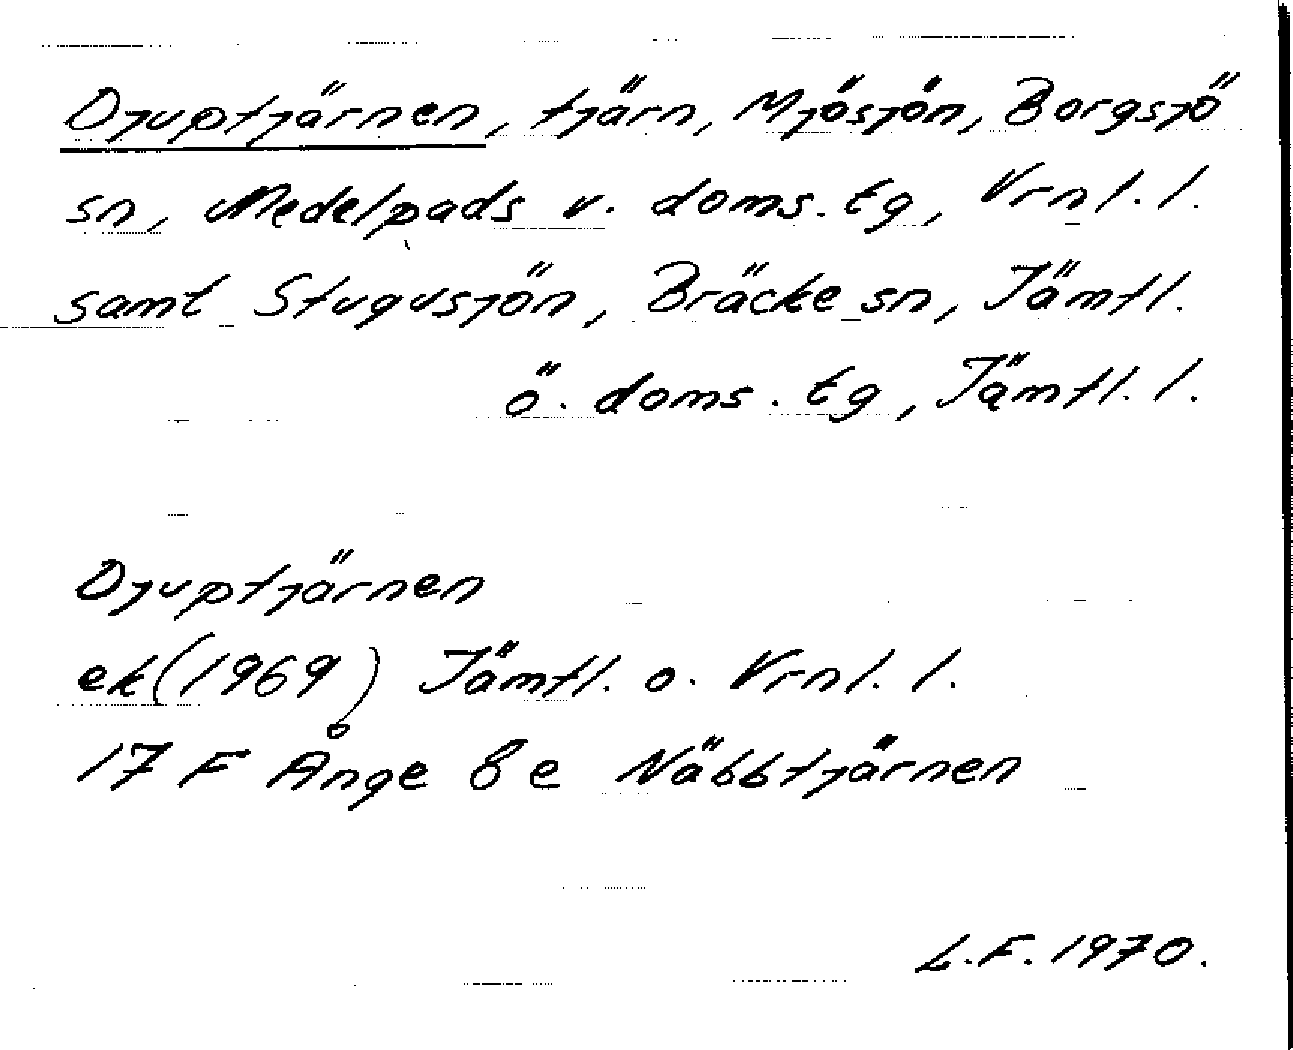 Djuptjärnen, tjärn, Mjösjön, Borgsjö
sn, Medelpads v. doms. tg, Vrnl. l.
samt Stugusjön, Bräcke sn, Jämtl.
ö. doms. tg, Jämtl. l.
Djuptjärnen
ek (1969) Jämtl. o. Vrnl. l.
17 F Ånge 8 e Näbbtjärnen
L.F. 1970.